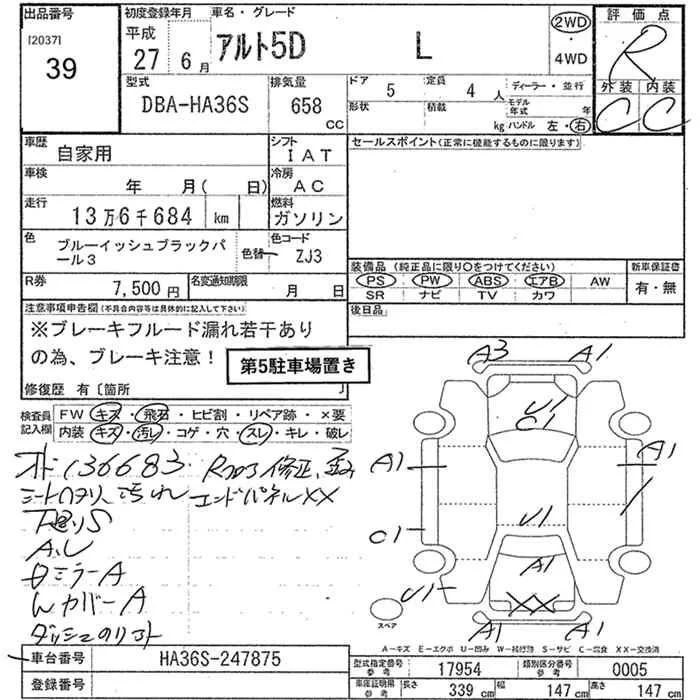 出品番号 初度登録年月 車名・グレード 評価点
[20371]
39
平成 27年 6月 アルト5D L 2WD 4WD R
外装 内装
C C
型式 DBA-HA36S 排気量 658 CC
ドア 5 定員 4人 ディーラー・並行
形状 積載 kg モデル年式 年
ハンドル 左・右
車歴 自家用 シフト IAT
車検 年 月( 日) 冷房 AC
走行 13万6千684 km 燃料 ガソリン
色 ブルーイッシュブラックパール3 色替 色コード ZJ3
R券 7,500円 名変通知期限 月 日
セールスポイント(正常に機能するものに限ります)
装備品(純正品に限り○をつけてください) 新車保証書
PS PW ABS エアB AW 有・無
SR ナビ TV カワ
後日品
注意事項申告欄(不具合内容等は具体的に記入して下さい)
※ブレーキフルード漏れ若干あり
の為、ブレーキ注意!
第5駐車場置き
修復歴 有〔箇所 〕
検査員記入欄 FW キズ・飛石・ヒビ割・リペア跡・×要
内装 キズ・汚れ・コゲ・穴・スレ・キレ・破レ
136683
汚れ エンドパネルXX
下廻りS
ミラーA
カバーA
A3 A1
U1
C1
A1 A1
U1
C1
A1
U1
XX
A1 A1
スペア
A-キズ E-エクボ U-凹み W-補修跡 S-サビ C-腐食 XX-交換済
車台番号 HA36S-247875
登録番号
型式指定番号 参考 17954 類別区分番号 参考 0005
車庫証明用 参考 長さ 339cm 幅 147cm 高さ 147cm